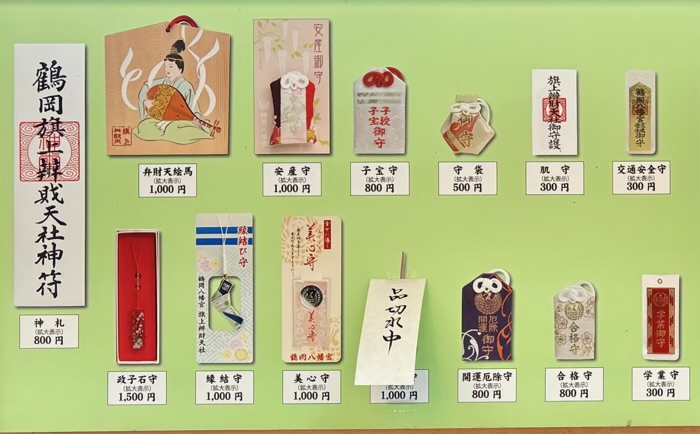 鶴岡旗上辨財天社神符
神札
(拡大表示)
800 円
旗上
弁財天
弁財天絵馬
(拡大表示)
1,000 円
安産御守
安産守
(拡大表示)
1,000 円
子授
子宝御守
子宝守
(拡大表示)
800 円
御守
守袋
(拡大表示)
500 円
旗上辨財天社御守護
肌守
(拡大表示)
300 円
交通安全守
(拡大表示)
300 円
政子石守
(拡大表示)
1,500 円
縁結び守
鶴岡八幡宮 旗上辨財天社
縁結守
(拡大表示)
1,000 円
美心守
美心守
鶴岡八幡宮
美心守
(拡大表示)
1,000 円
品切れ中
守
1,000 円
開運
厄除
御守
開運厄除守
(拡大表示)
800 円
合格守
合格守
(拡大表示)
800 円
学業御守
学業守
(拡大表示)
800 円